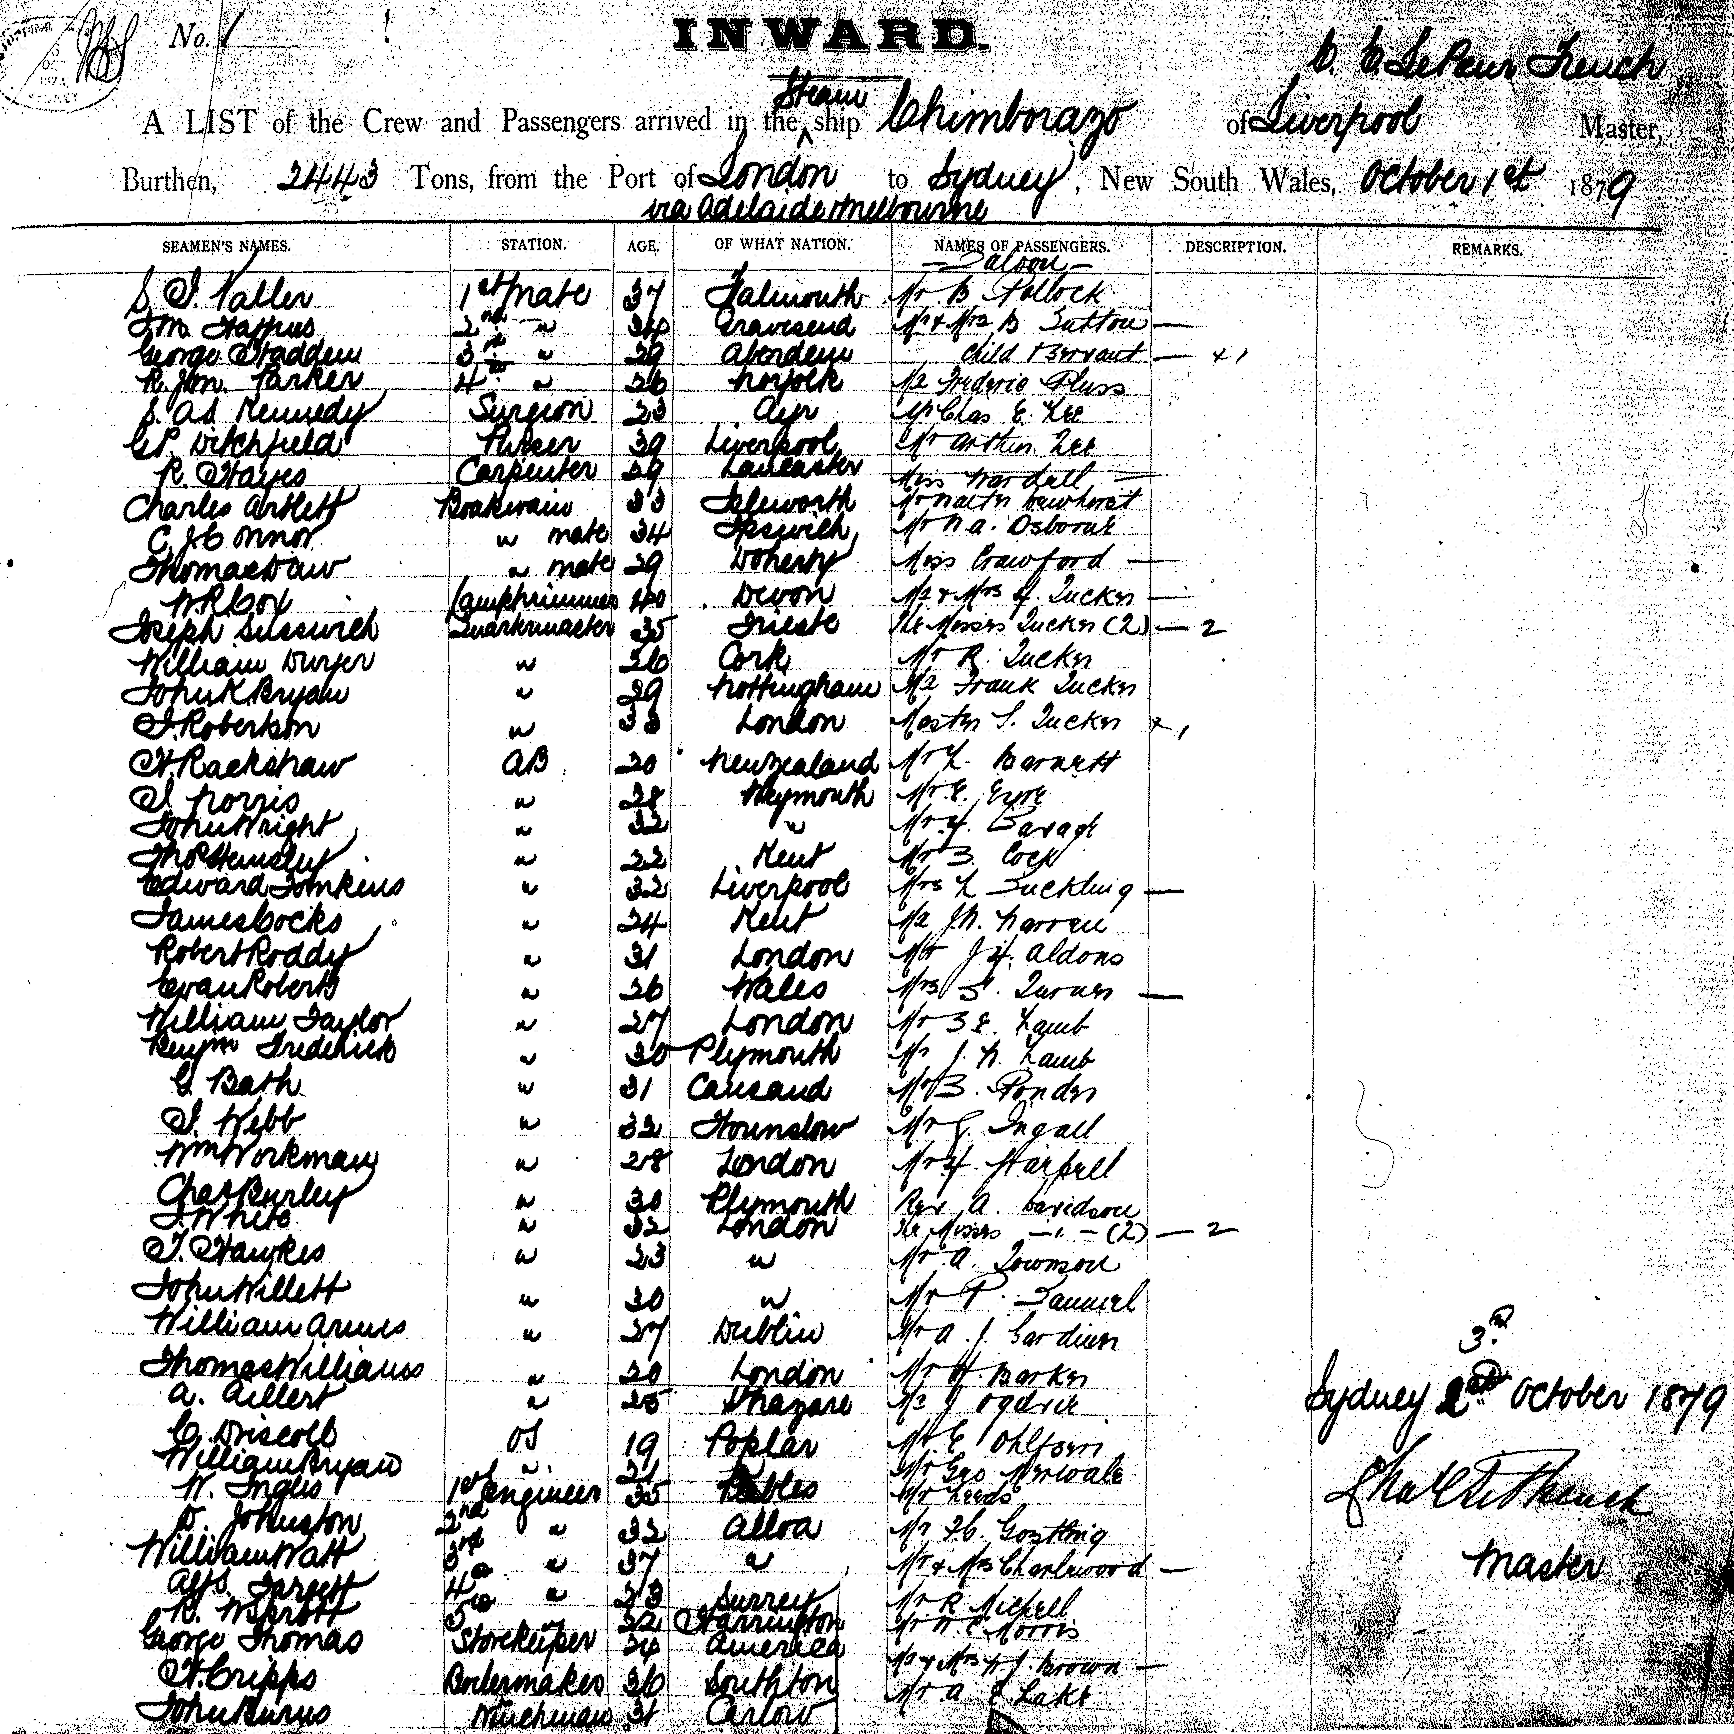 No. 1
INWARD.
C. C. French
Steam
A LIST of the Crew and Passengers arrived in the ship Chimborazo of Liverpool Master,
Burthen, 2443 Tons, from the Port of London to Sydney, New South Wales, October 1st 1879
via Adelaide & Melbourne
SEAMEN'S NAMES. STATION. AGE. OF WHAT NATION. NAMES OF PASSENGERS. DESCRIPTION. REMARKS.
— Saloon —
1st Mate 37 Falmouth Mr B. Pollock
2nd " 34 Gravesend Mr & Mrs B Sutton —
George Stadden 3rd " 29 Aberdeen child & Servant —
R. Jon. Parker 4th " 26 Norfolk Mr Frederic
Kennedy Surgeon 23 Ayr Mr Chas E. Lee
Ditchfield Purser 39 Liverpool Mr Arthur Lee
R. Hayes Carpenter 29 Lancaster Miss Wardell —
Charles Artlett Boatswain 33 Isleworth Mr Walter Dewhurst
C. J. Connor " mate 34 Ipswich Mr W. A. Osborne
Thomas Daw " mate 29 Doherty Miss Crawford —
W. R. Cox Lamptrimmer 40 Devon Mr & Mrs J. Tucker —
Joseph Quartermaster 35 Trieste The Misses Tucker (2) — 2
William Dwyer " 26 Cork Mr R. Tucker
John K. Bryan " 29 Nottingham Mr Frank Tucker
J. Robertson " 33 London Master S. Tucker
H. Rackshaw AB 20 New Zealand Mr L. Barnett
J. Norris " 28 Weymouth Mr E. Eyre
John Wright " 32 " Mr
Thos " 22 Kent Mr S. Cock
Edward Tomkins " 32 Liverpool Mrs L Suckling —
James Cocks " 24 Kent Mr J. W. Warren
Robert Roddy " 31 London Mr J. H. Aldons
Evan Roberts " 26 Wales Mrs S. Turner —
William Taylor " 27 London Mr S E. Lamb
Benjm Frederick " 30 Plymouth Mr J. W. Lamb
G. Bath " 31 Causand Mr S. Ponder
J. Webb " 32 Hounslow Mr G. Ingall
Wm Workman " 28 London Mr H. Harpell
Chas Burley " 30 Plymouth Rev. A. Davidson
J. White " 32 London The Misses — " — (2) — 2
J. Hawkes " 23 " Mr A. Townson
John Willett " 30 " Mr P. Samuel
William Armes " 27 Dublin Mr A. J. Gardiner
3rd
Thomas Williams " 20 London Mr H. Barker
A. Aillert " 25 Mr J Ogilvie
Sydney 2nd October 1879
C. Driscoll OS 19 Poplar Mr E Ohlfsen
William Bryan " 21 " Mr Geo Merivale
W. Inglis 1st Engineer 35 Peebles Mr Leeds
D. Johnston 2nd " 32 Alloa Mr Gostling
William Watt 3rd " 37 " Mr & Mrs Charlewood —
Master
Alfd. Targett 4th " 23 Surrey Mr R. Michell
5th 22 Warrington Mr W. E. Morris
George Thomas Storekeeper 34 America
H. Cripps Boilermaker 36 Southton Mr & Mrs W J. Brown —
John Burns Winchman 31 Carlow Mr A. E Lake